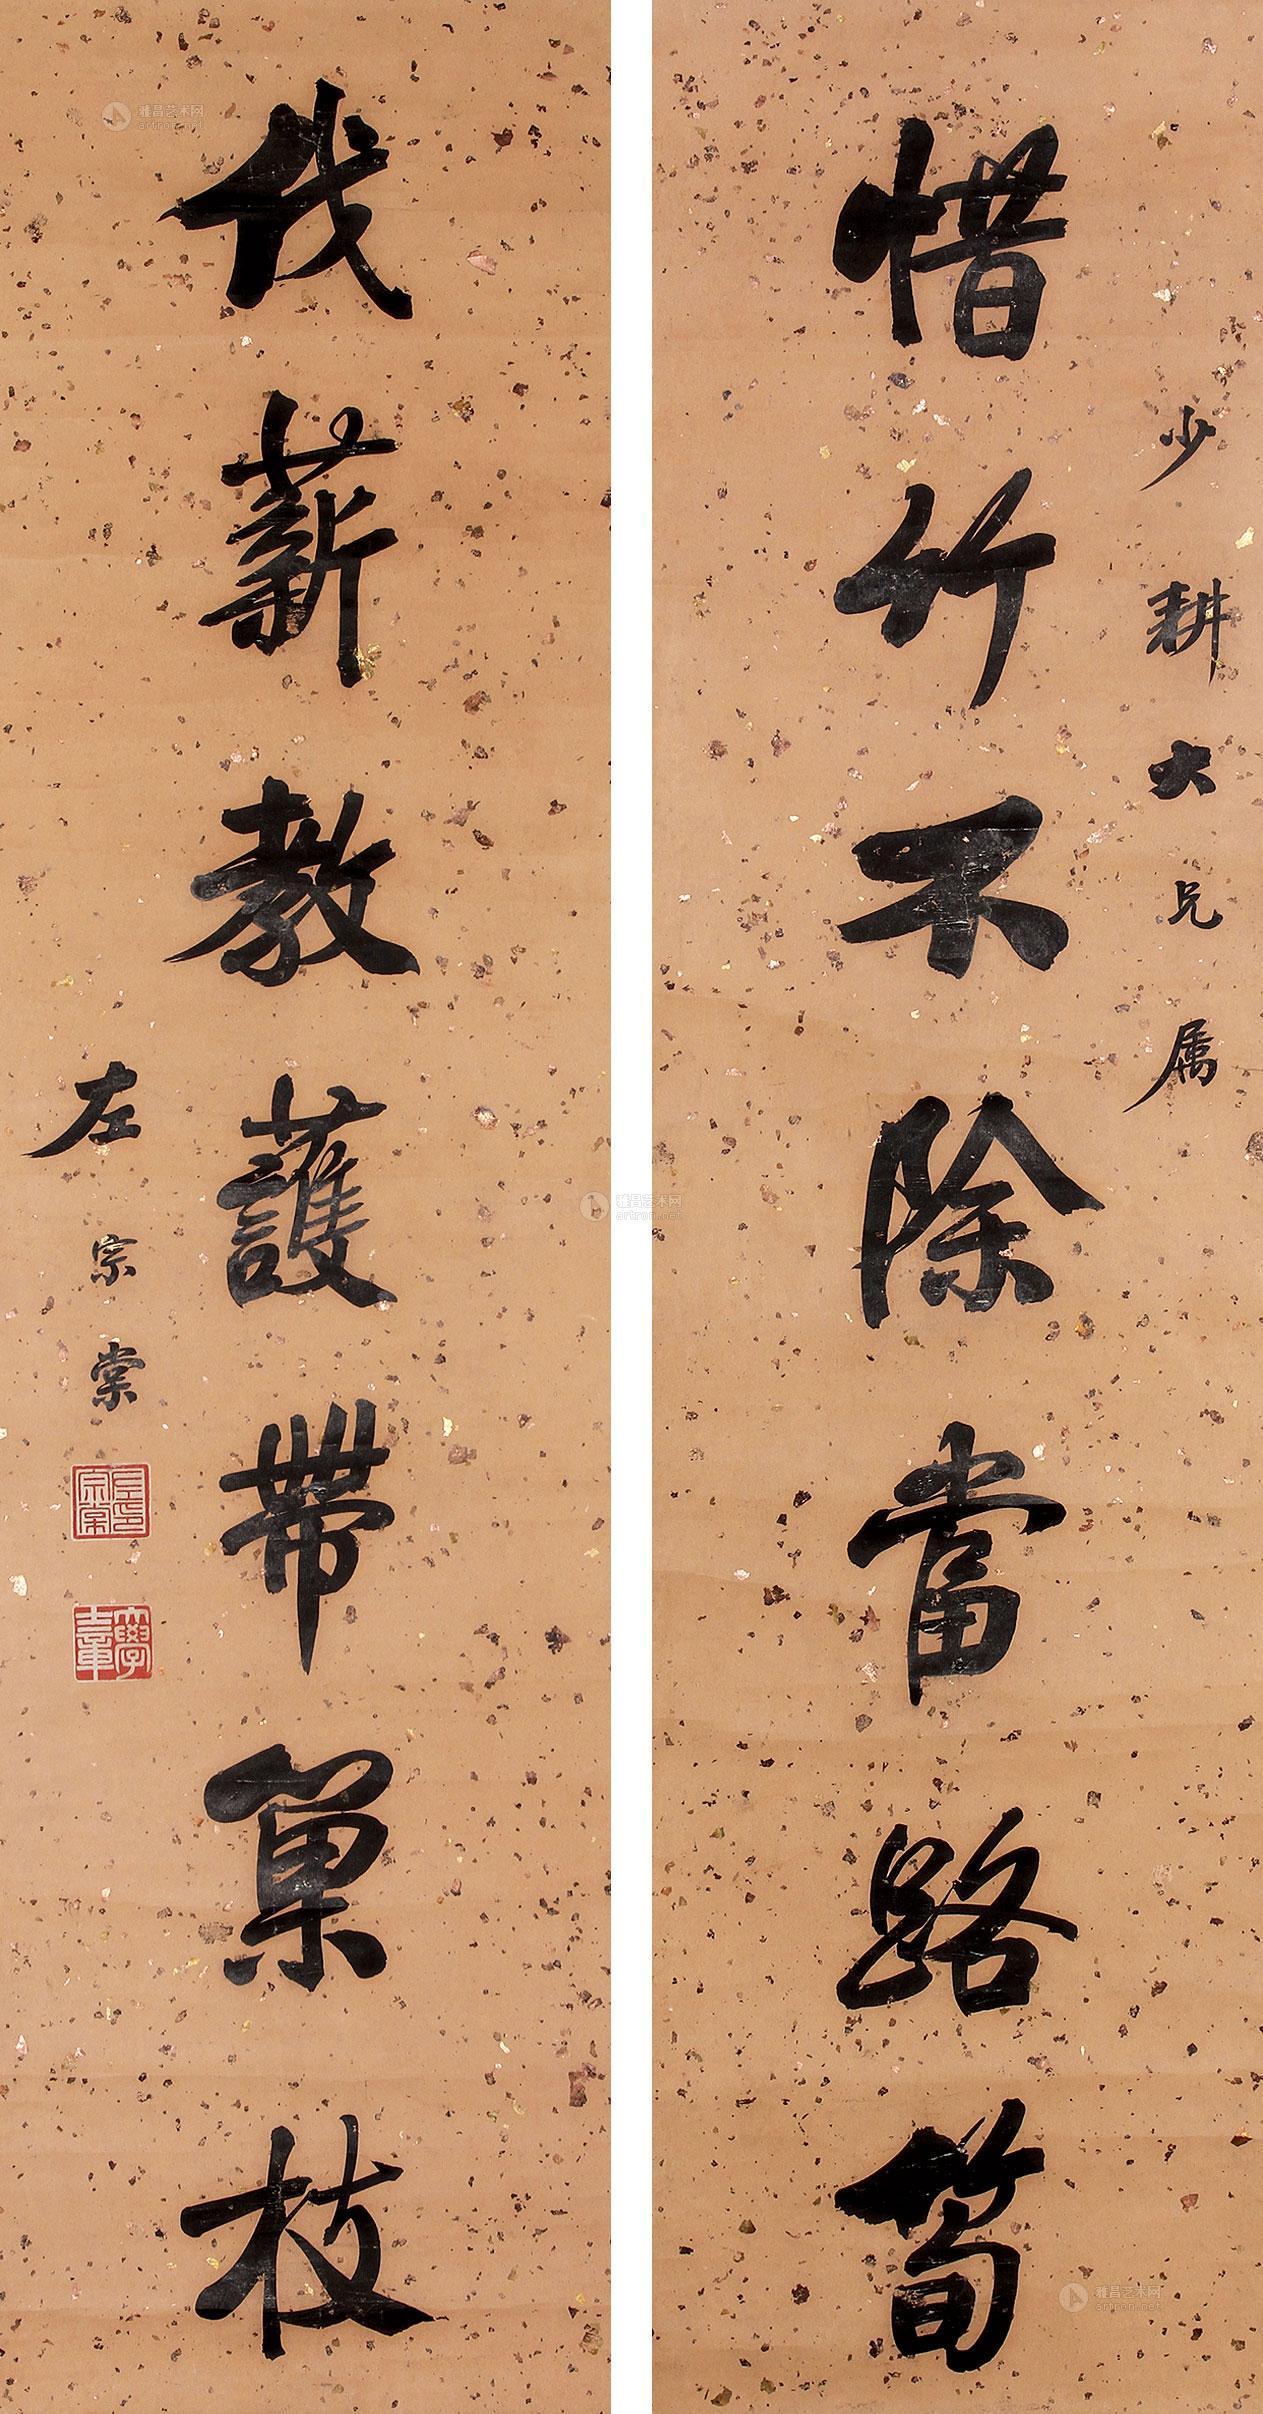 少耕大兄属
惜竹不除當路筍
伐薪教護帶巢枝
左宗棠
雅昌艺术网
artron.net
雅昌艺术网
artron.net
雅昌艺术网
artron.net